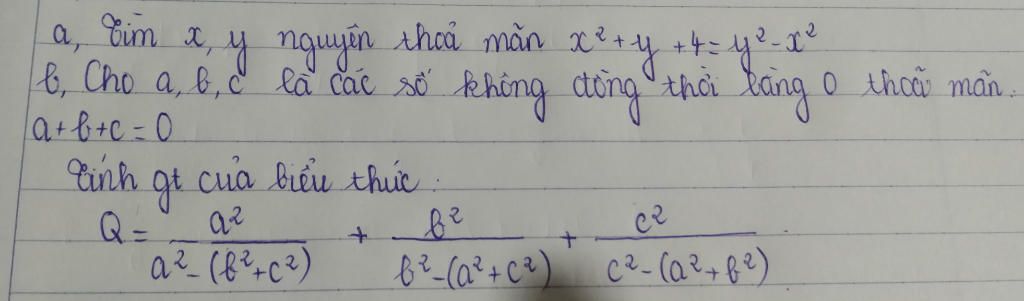 a, Tìm x, y nguyên thoả mãn x² + y + 4 = y² - x²
b, Cho a, b, c là các số không đồng thời bằng 0 thoả mãn.
a + b + c = 0
Tính gt của biểu thức:
Q = a²/(a² - (b² + c²)) + b²/(b² - (a² + c²)) + c²/(c² - (a² + b²))